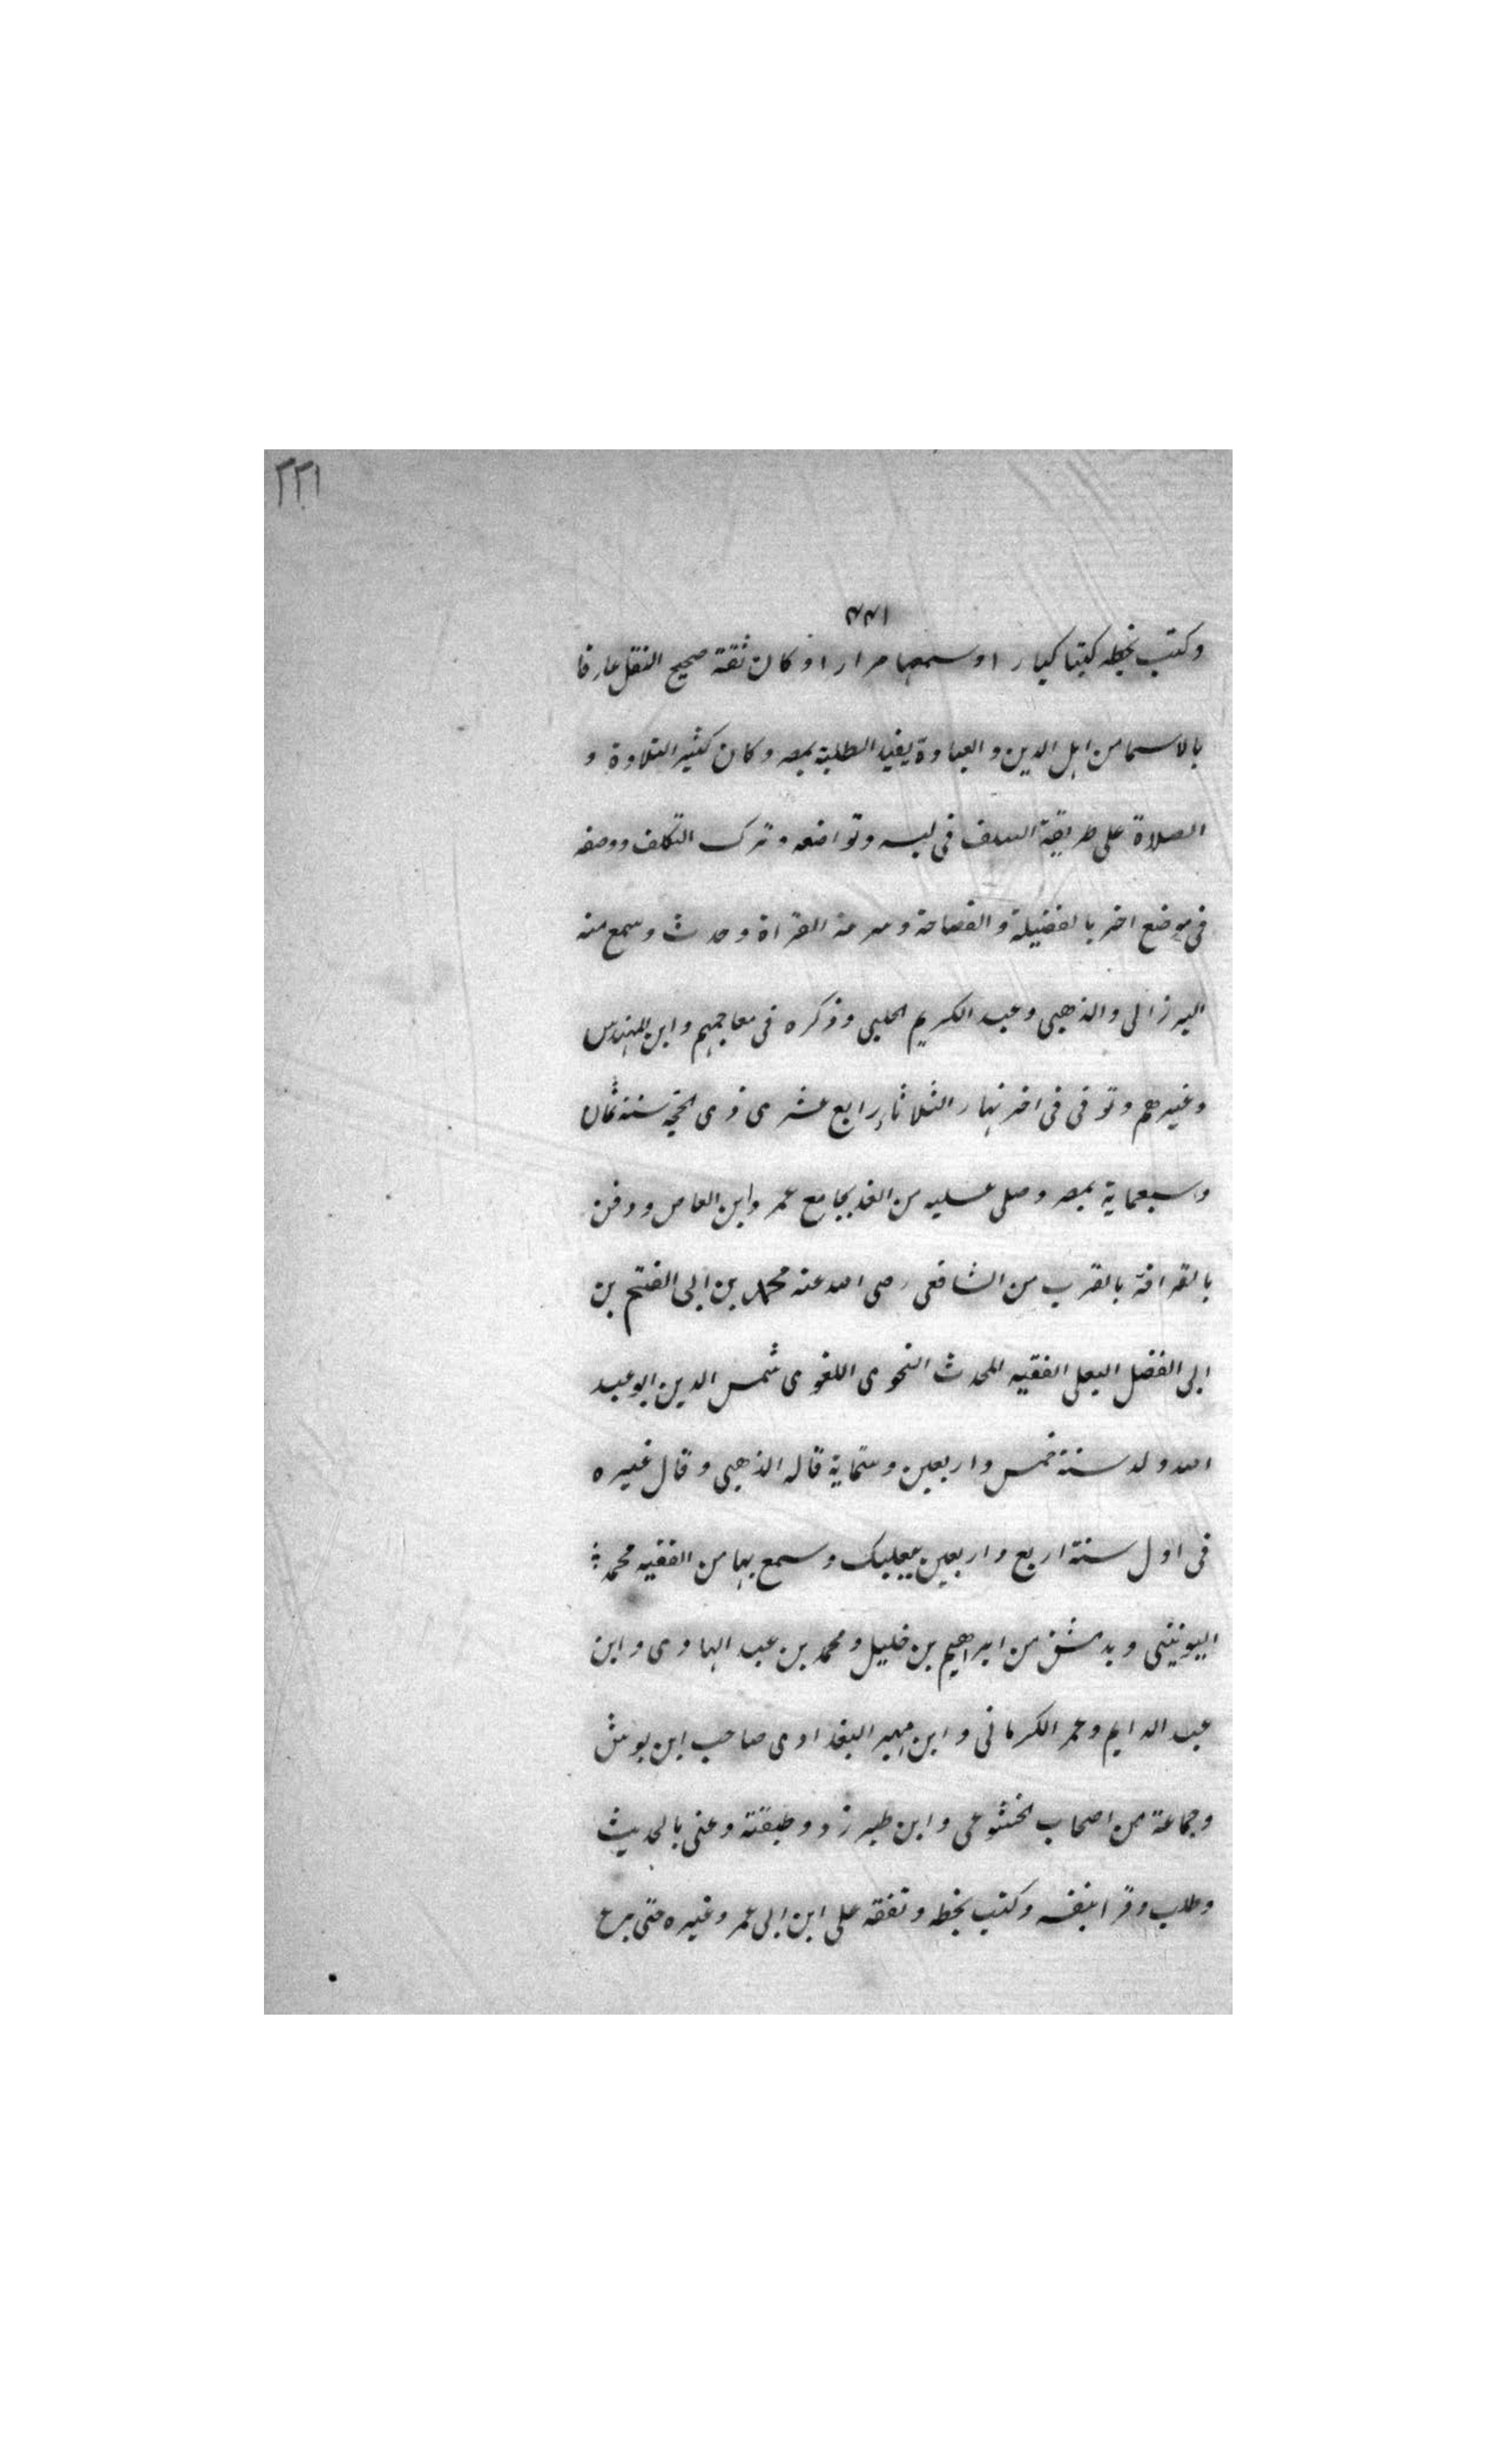 ٢٢١
٢٢١
وكتب بخطه كتبا كبارا وسمعها مرارا وكان ثقة صحيح النقل عارفا
بالاسما من اهل الدين والعبادة يفيد الطلبة بمصر وكان كثير التلاوة و
الصلاة على طريقة السلف فى لبسه وتواضعه وترك التكلف ووصفه
فى موضع اخر بالفضيلة والفصاحة وسرعة القراة وحدث وسمع منه
البرزالى والذهبى وعبد الكريم الحلبى وذكره فى معاجمهم وابن المهندس
وغيرهم وتوفى فى اخر نهار الثلاثاء رابع عشرى ذى الحجة سنة ثمان
وسبعماية بمصر وصلى عليه من الغد بجامع عمرو ابن العاص ودفن
بالقرافة بالقرب من الشافعى رضى الله عنه محمد بن ابى الفتح بن
ابى الفضل البعلى الفقيه المحدث النحوى اللغوى شمس الدين ابو عبد
الله ولد سنة خمس واربعين وستماية قاله الذهبى وقال غيره
فى اول سنة اربع واربعين ببعلبك وسمع بها من الفقيه محمد
اليونينى وبدمشق من ابراهيم بن خليل ومحمد بن عبد الهادى وابن
عبد الدايم وعمر الكرمانى وابن مهير البغدادى صاحب ابن بوش
وجماعة من اصحاب الخشوعى وابن طبرزد وطبقته وعنى بالحديث
وطلب وقرا بنفسه وكتب بخطه وتفقه على ابن ابى عمر وغيره حتى برع